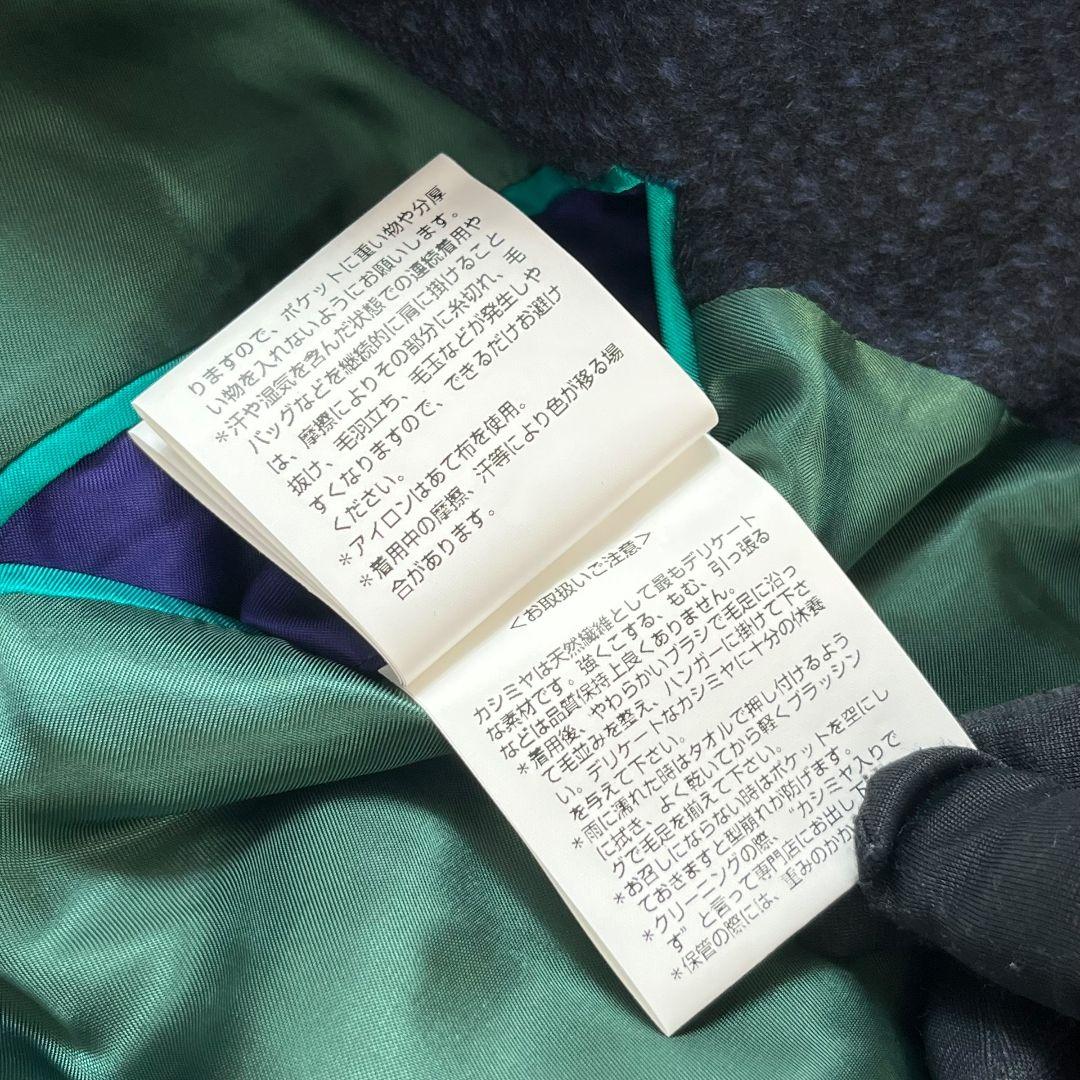 りますので、ポケットに重い物や分厚
い物を入れないようにお願いします。
＊汗や湿気を含んだ状態での連続着用や
バッグなどを継続的に肩に掛けること
は、摩擦によりその部分に糸切れ、毛
抜け、毛羽立ち、毛玉などが発生しや
すくなりますので、できるだけお避け
ください。
＊アイロンはあて布を使用。
＊着用中の摩擦、汗等により色が移る場
合があります。
＜お取扱いご注意＞
カシミヤは天然繊維として最もデリケート
な素材です。強くこする、もむ、引っ張る
などは品質保持上良くありません。
＊着用後、やわらかいブラシで毛足に沿っ
て毛並みを整え、ハンガーに掛けて下さ
い。デリケートなカシミヤに十分の休養
を与えて下さい。
＊雨に濡れた時はタオルで押し付けるよう
に拭き、よく乾いてから軽くブラッシン
グで毛足を揃えて下さい。
＊お召しにならない時はポケットを空にし
ておきますと型崩れが防げます。
＊クリーニングの際、“カシミヤ入りで
す”と言って専門店にお出し下
＊保管の際には、重みのかか